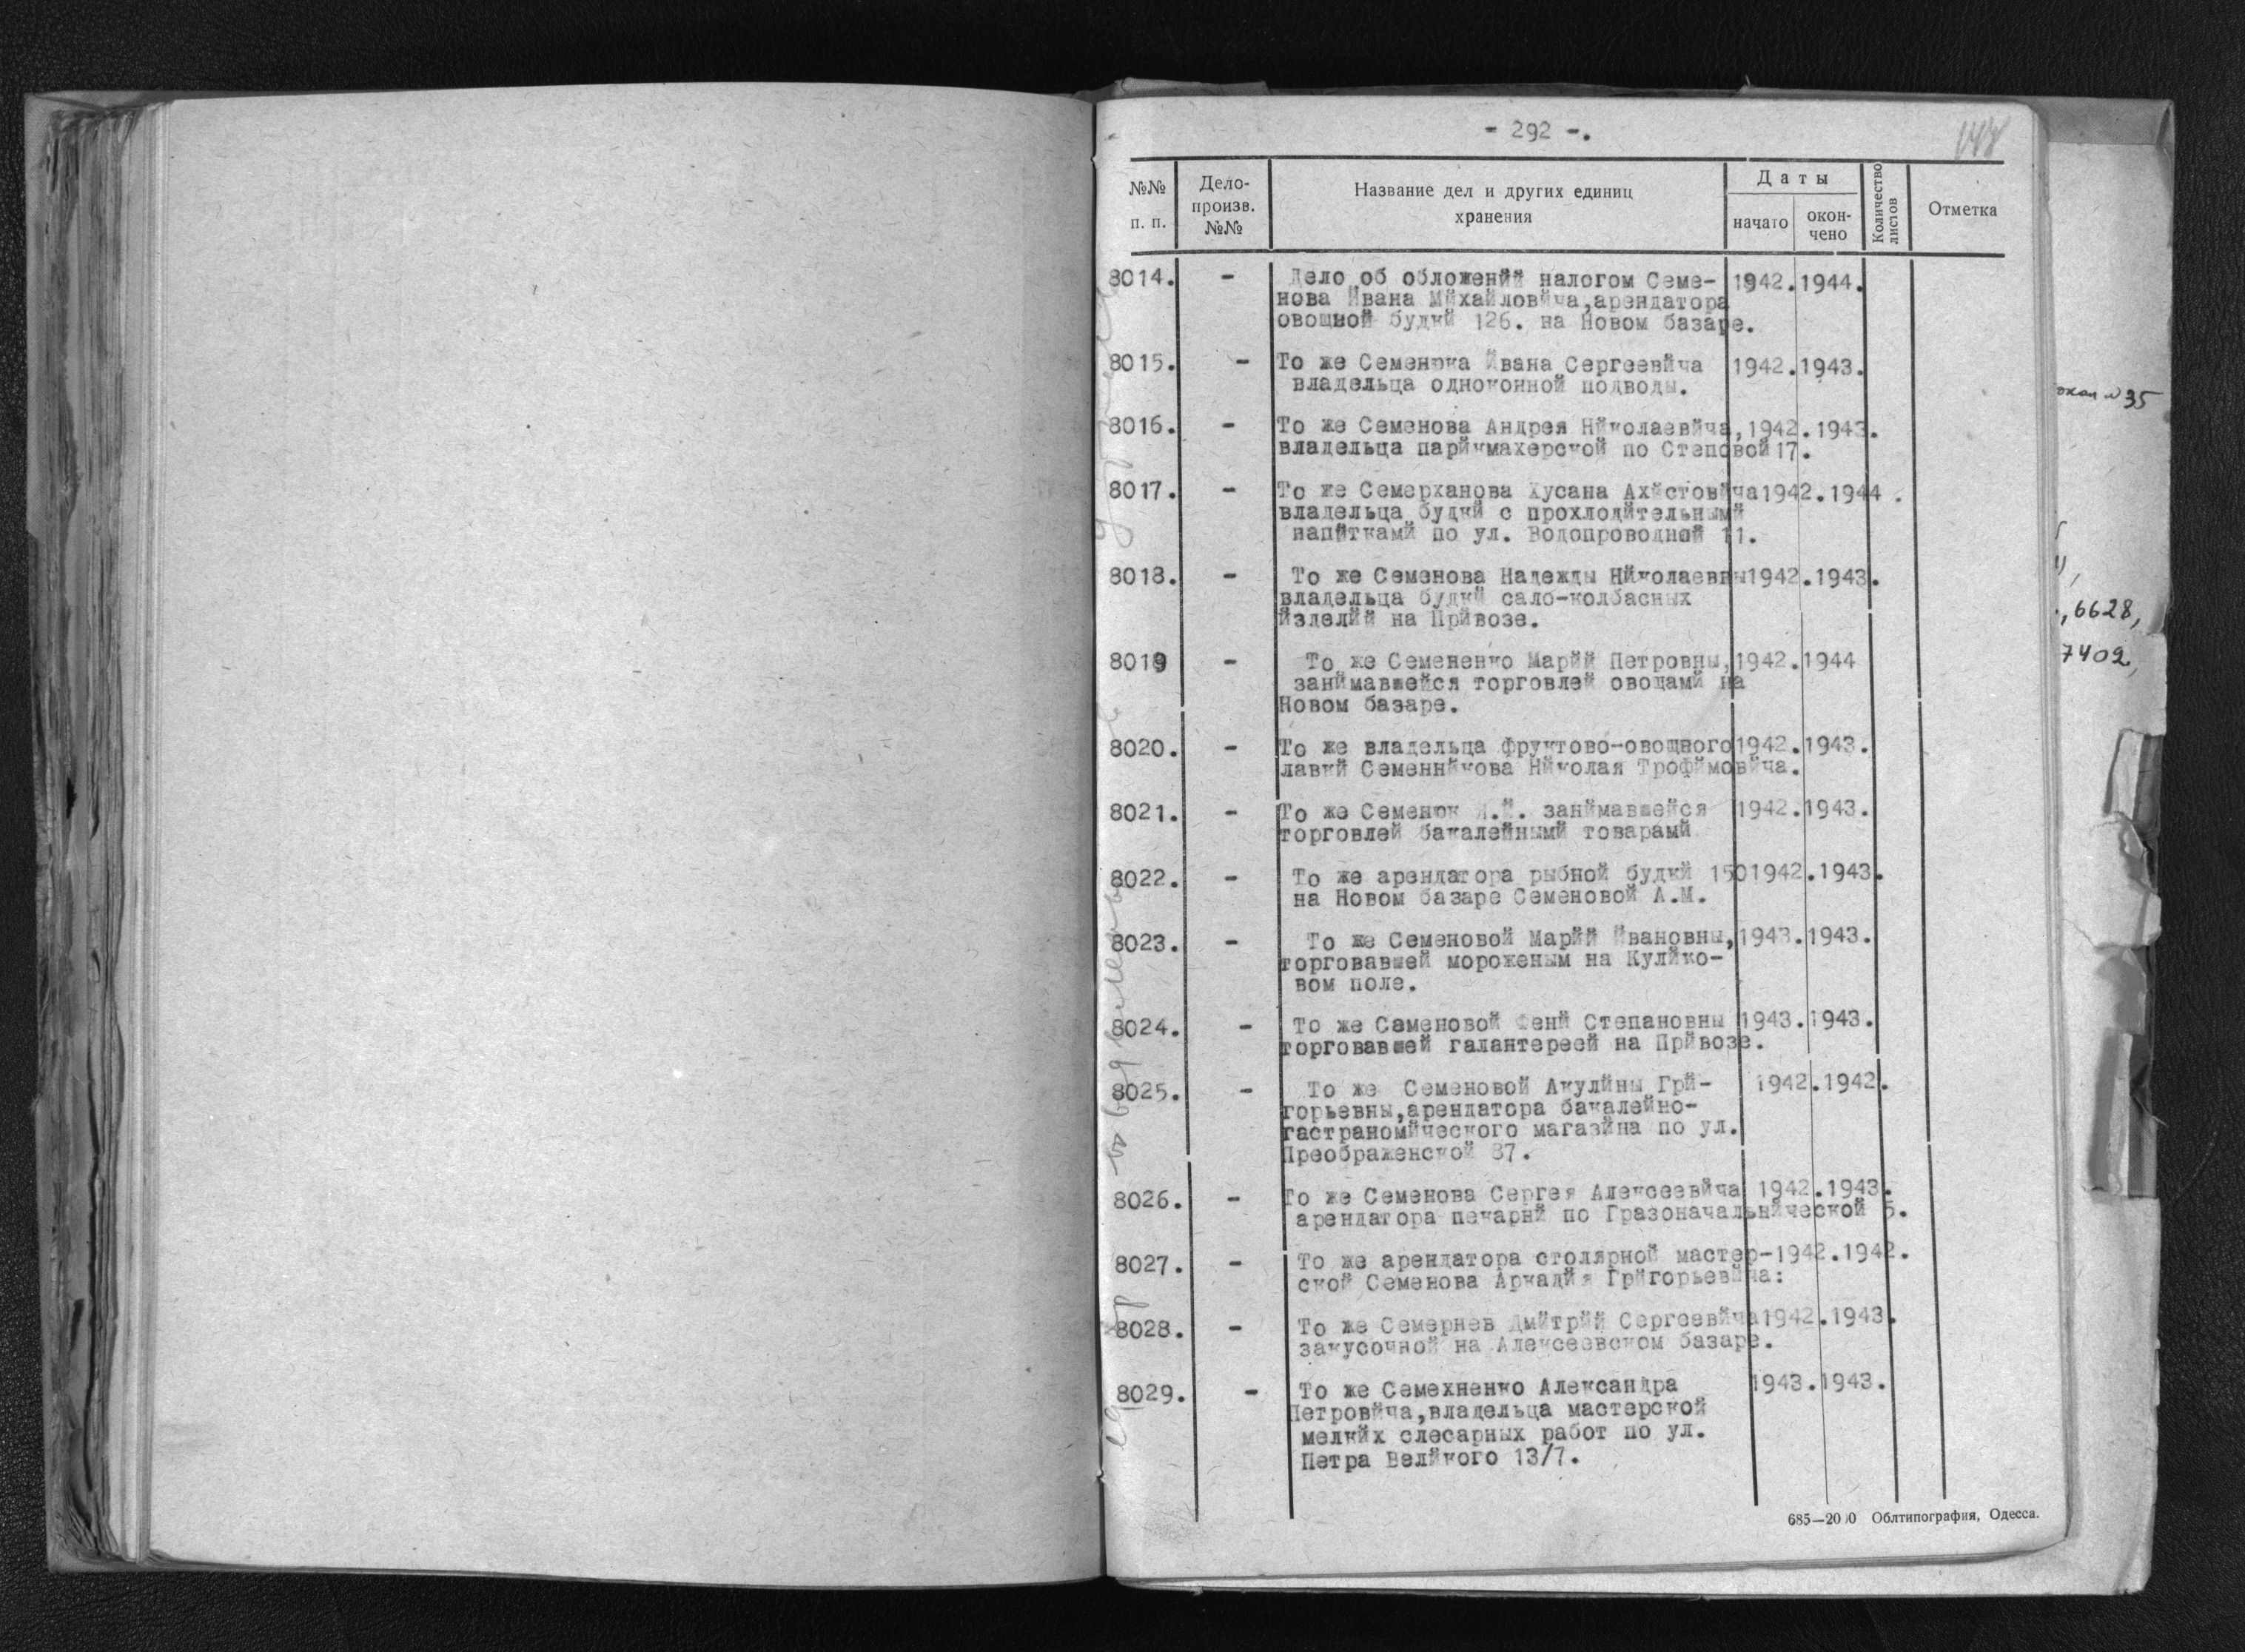 - 292 -.
№№ п. п.
Дело-произв. №№
Название дел и других единиц хранения
Даты
начато
окон-чено
Количество листов
Отметка
8014. - Дело об обложений налогом Семе- 1942. 1944.
нова Ивана Михайловича, арендатора
овощной будки 126. на Новом базаре.
8015. - То же Семенюка Ивана Сергеевича 1942. 1943.
владельца одноконной подводы.
8016. - То же Семенова Андрея Николаевича, 1942. 1943.
владельца парикмахерской по Степовой 17.
8017. - То же Семерханова Хусана Ахистовича 1942. 1944.
владельца будки с прохлодительными
напитками по ул. Водопроводной 11.
8018. - То же Семенова Надежды Николаевны 1942. 1943.
владельца будки сало-колбасных
изделий на Привозе.
8019 - То же Семененко Марии Петровны, 1942. 1944
занимавшейся торговлей овощами на
Новом базаре.
8020. - То же владельца фруктово-овощного 1942. 1943.
лавки Семенникова Николая Трофимовича.
8021. - То же Семенюк занимавшейся 1942. 1943.
торговлей бакалейными товарами
8022. - То же арендатора рыбной будки 150 1942. 1943.
на Новом базаре Семеновой А.М.
8023. - То же Семеновой Марии Ивановны, 1943. 1943.
торговавшей мороженым на Кулико-
вом поле.
8024. - То же Семеновой Фени Степановны 1943. 1943.
торговавшей галантереей на Привозе.
8025. - То же Семеновой Акулины Гри- 1942. 1942.
горьевны, арендатора бакалейно-
гастраномического магазина по ул.
Преображенской 87.
8026. - То же Семенова Сергея Алексеевича 1942. 1943.
арендатора пекарни по Гразоначальнической 5.
8027. - То же арендатора столярной мастер- 1942. 1942.
ской Семенова Аркадия Григорьевича:
8028. - То же Семернев Дмитрий Сергеевича 1942. 1943.
закусочной на Алексеевском базаре.
8029. - То же Семехненко Александра 1943. 1943.
Петровича, владельца мастерской
мелких слесарных работ по ул.
Петра Великого 13/7.
685—2000 Облтипография, Одесса.
35
, 6628,
7402,